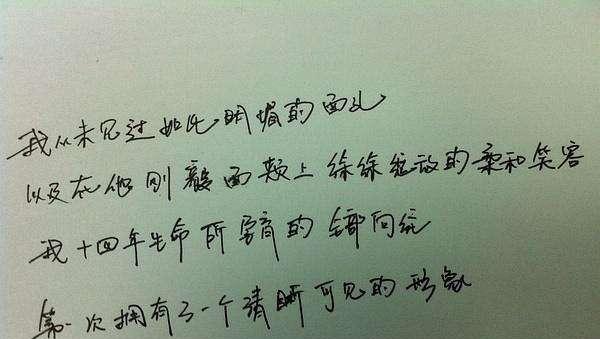 我从未见过如此明媚的面孔
以及在他刚毅面颊上徐徐绽放的柔和笑容
我十四年生命所孕育的全部向
第一次拥有了一个清晰可见的形象